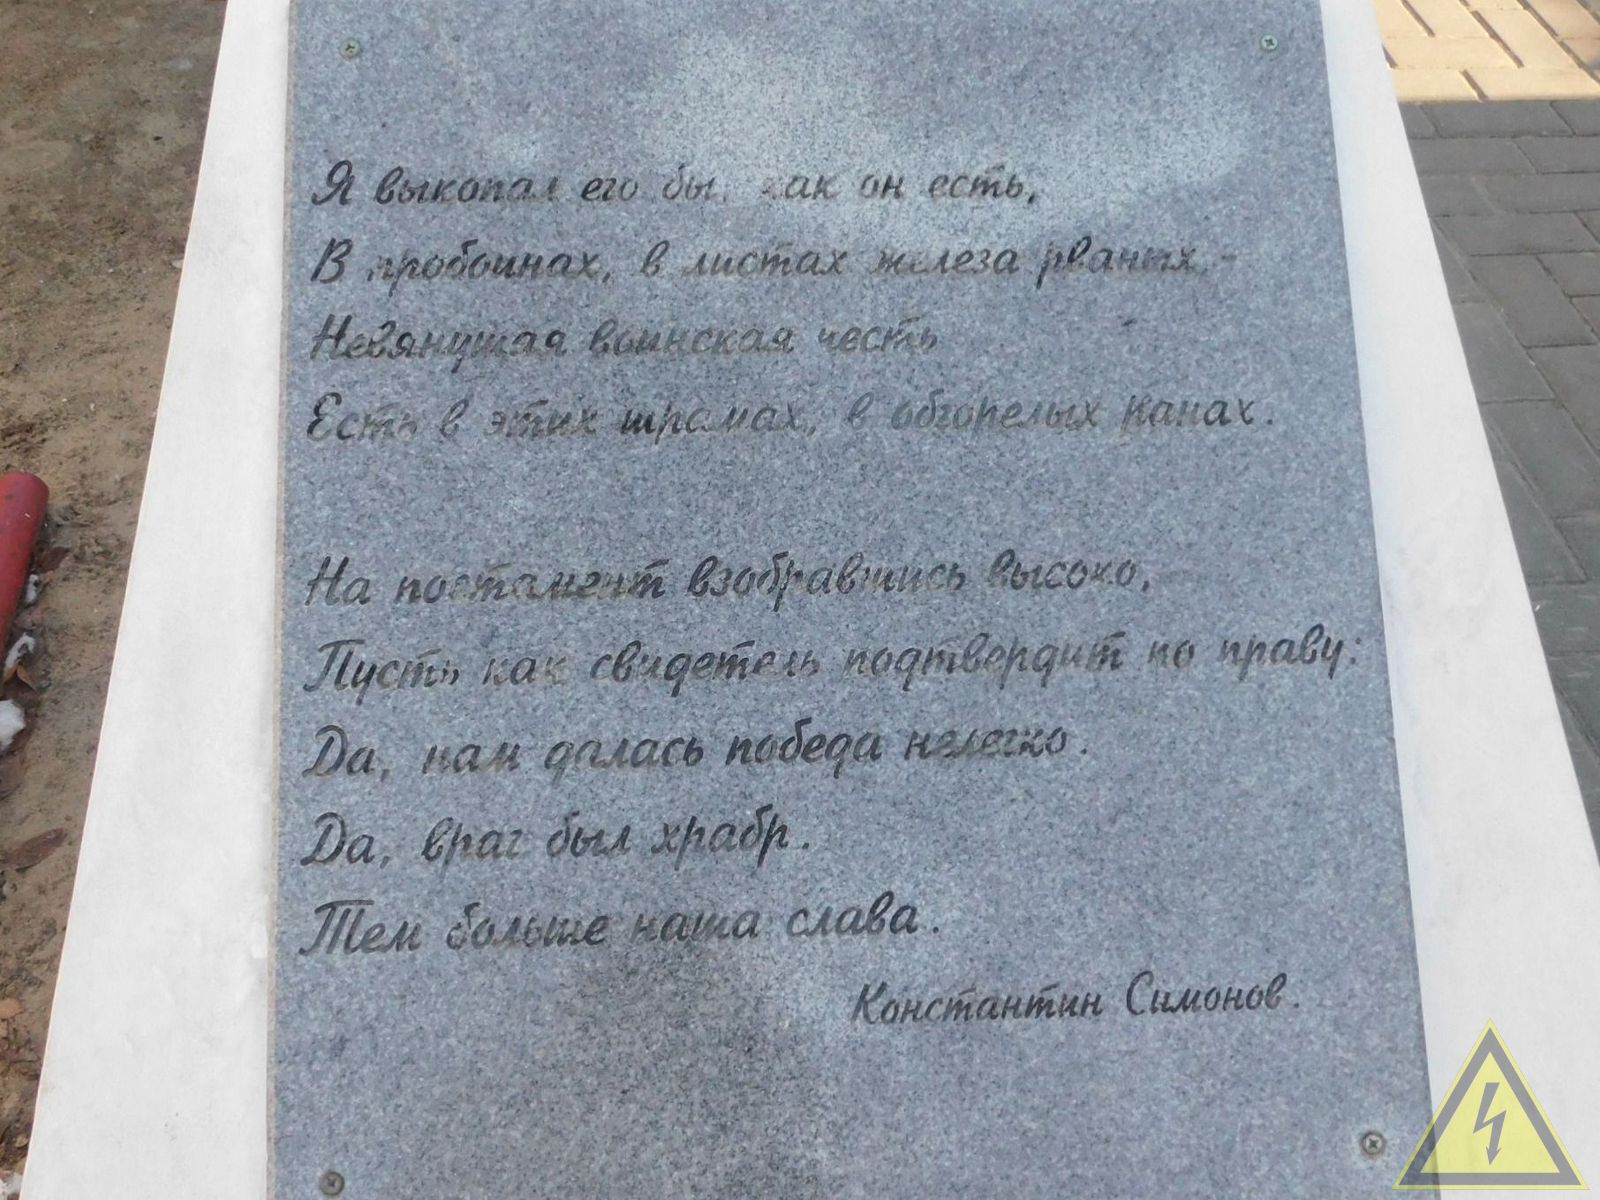 Я выкопал его бы, как он есть,
В пробоинах, в листах железа рваных, -
Невянущая воинская честь
Есть в этих шрамах, в обгорелых ранах.
На постамент взобравшись высоко,
Пусть как свидетель подтвердит по праву:
Да, нам далась победа нелегко.
Да, враг был храбр.
Тем больше наша слава.
Константин Симонов.